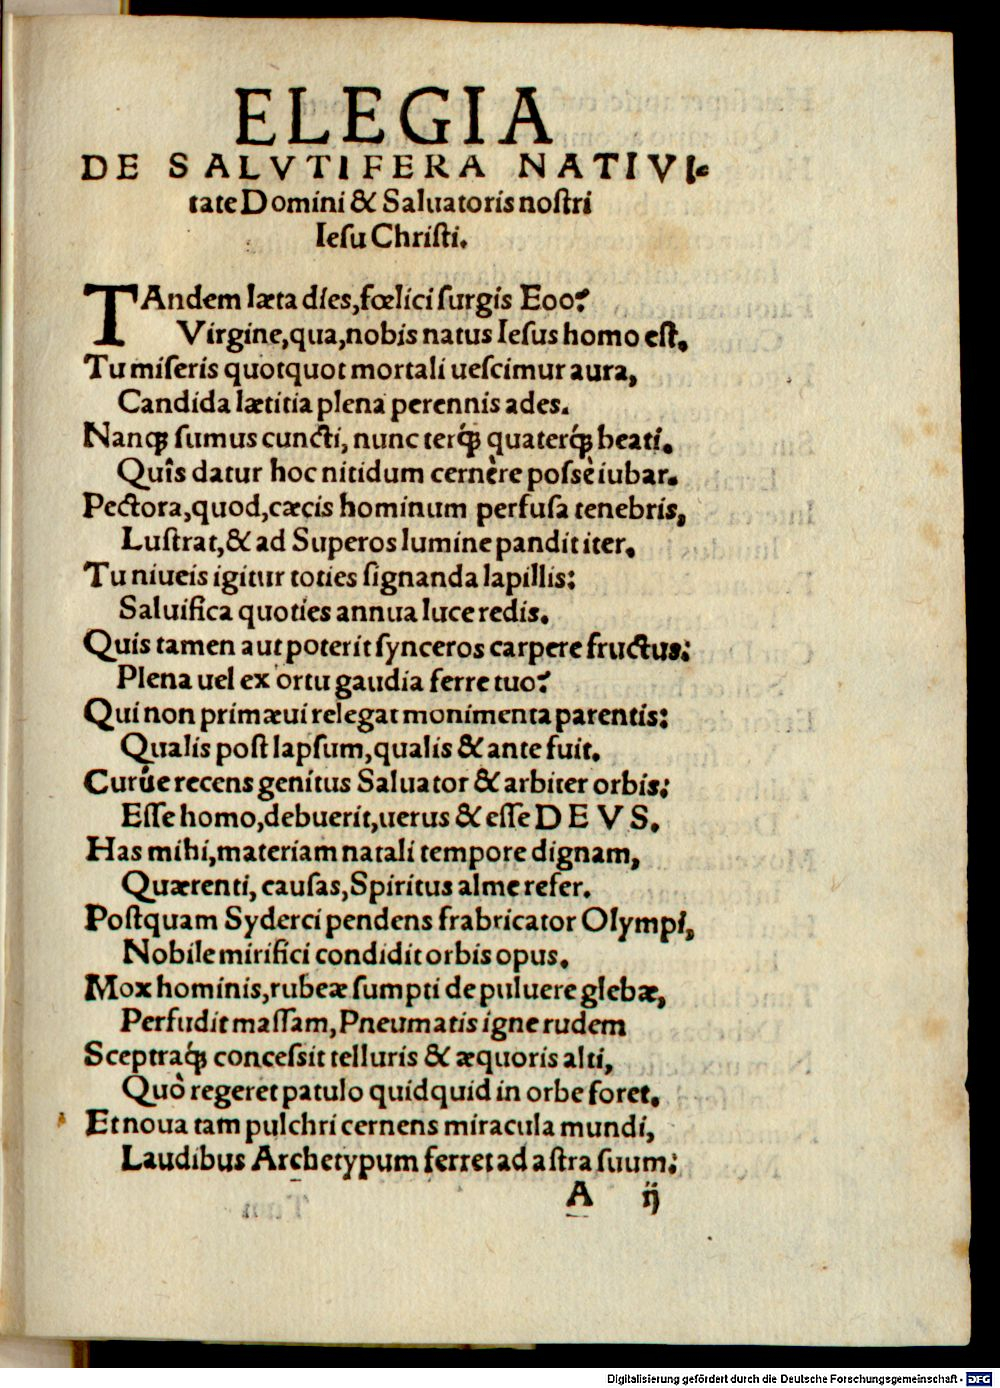 ELEGIA
DE SALVTIFERA NATIVI-
tate Domini & Saluatoris nostri
Iesu Christi.
TAndem læta dies, fœlici surgis Eoo?
Virgine, qua, nobis natus Iesus homo est.
Tu miseris quotquot mortali uescimur aura,
Candida lætitia plena perennis ades.
Nanqꝫ sumus cuncti, nunc terqꝫ́ quaterqꝫ́ beati.
Quîs datur hoc nitidum cernère possè iubar.
Pectora, quod, cæcis hominum perfusa tenebris,
Lustrat, & ad Superos lumine pandit iter.
Tu niueis igitur toties signanda lapillis:
Saluifica quoties annua luce redis.
Quis tamen aut poterit synceros carpere fructus:
Plena uel ex ortu gaudia ferre tuo?
Qui non primæui relegat monimenta parentis:
Qualis post lapsum, qualis & ante fuit.
Curúe recens genitus Saluator & arbiter orbis:
Esse homo, debuerit, uerus & esse DEVS.
Has mihi, materiam natali tempore dignam,
Quærenti, causas, Spiritus alme refer.
Postquam Syderei pendens frabricator Olympi,
Nobile mirifici condidit orbis opus.
Mox hominis, rubeæ sumpti de puluere glebæ,
Perfudit massam, Pneumatis igne rudem
Sceptraqꝫ́ concessit telluris & æquoris alti,
Quò regeret patulo quidquid in orbe foret.
Et noua tam pulchri cernens miracula mundi,
Laudibus Archetypum ferret ad astra suum:
A ij
Digitalisierung gefördert durch die Deutsche Forschungsgemeinschaft - DFG